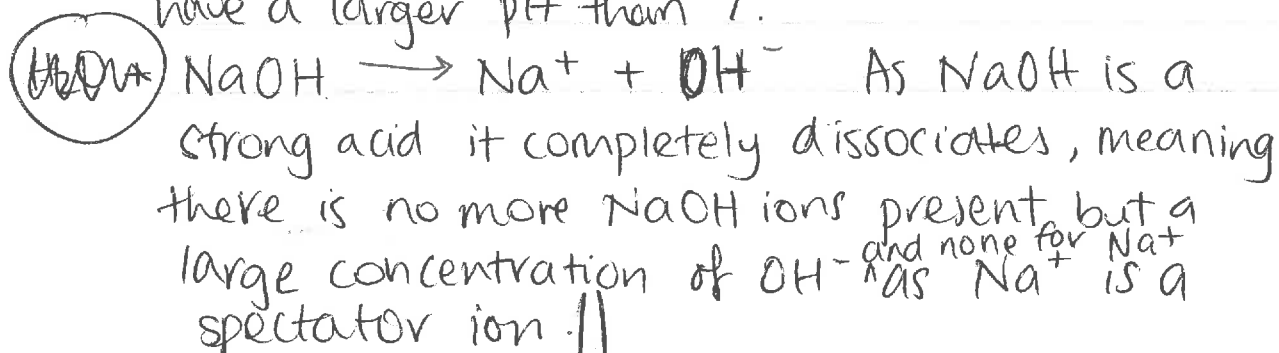 have a larger pH than 7.
NaOH → Na⁺ + OH⁻ As NaOH is a
strong acid it completely dissociates, meaning
there is no more NaOH ions present, but a
and none for Na⁺
large concentration of OH⁻ ^ as Na⁺ is a
spectator ion.